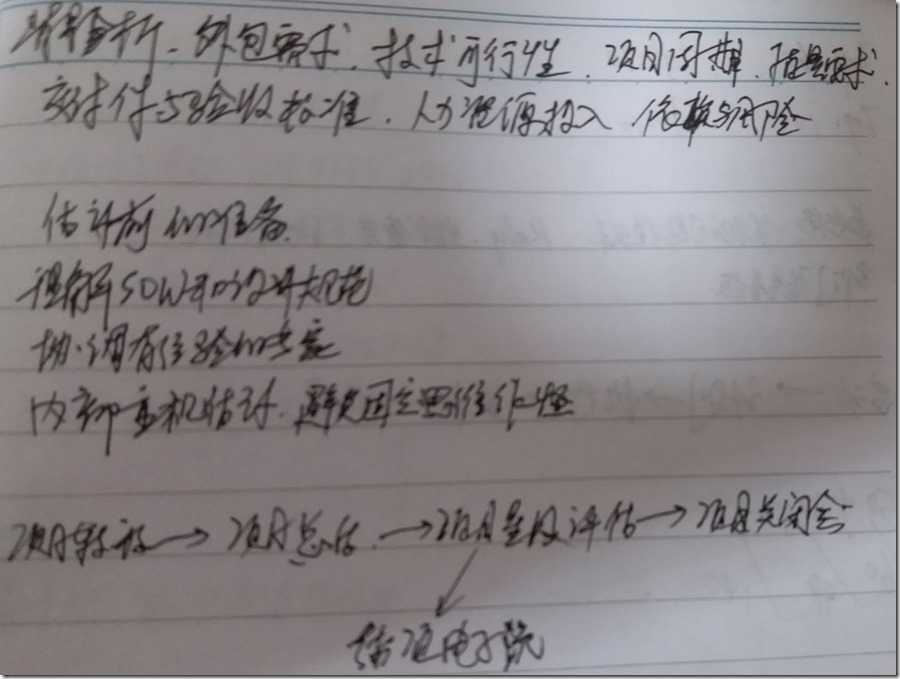 分析、外包需求、技术可行性、项目周期、质量要求、
交付件与验收标准、人力资源投入、依赖与风险
估计前的准备
理解SOW和设计规范
协调有经验的专家
内部重视估计、避免固定思维作怪
项目移交→项目总结→项目星级评估→项目关闭会
结项电子流